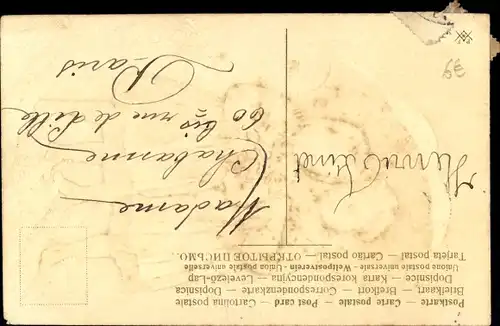 Postkarte — Carte postale — Post card — Cartolina postale
Briefkaart — Brefkort — Correspondenzkarte — Dopisnica
Dopisnice — Karta korespondencyjna — Levelező-Lap
Unione postale universale — Weltpostverein — Union postale universelle
Tarjeta postal — Cartão postal — ОТКРЫТОЕ ПИСЬМО.
Madame
Chabanne
60 bis rue de Lille
Paris
6€